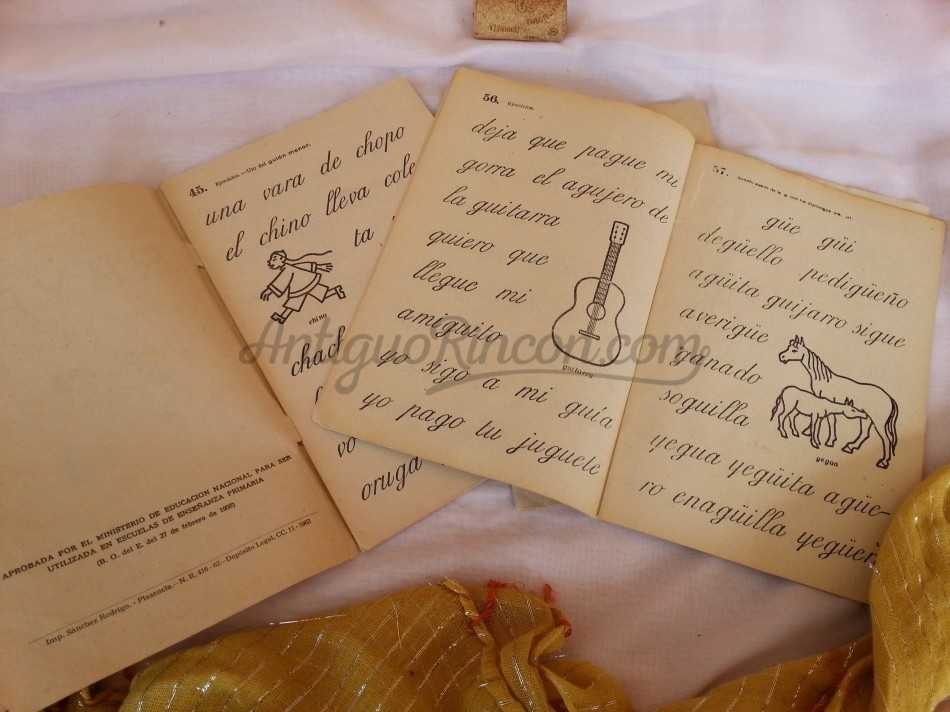 APROBADA POR EL MINISTERIO DE EDUCACION NACIONAL PARA SER
UTILIZADA EN ESCUELAS DE ENSEÑANZA PRIMARIA
(B. O. del E. del 27 de febrero de
Imp. Sánchez Rodrigo. - Plasencia.-N. R. 416 - 62.-Depósito Legal, CC. 11.-1962
45. Ejercicio.-Uso del guión menor.
una vara de chopo
el chino lleva cole
ta
chino
vo
oruga
56. Ejercicio.
deja que pague mi
gorra el agujero de
la guitarra
quiero que
llegue mi
amiguito
yo sigo a mi guía
yo pago tu juguete
guitarra
57.
güe güi
degüello pedigüeño
agüita guijarro sigue
averigüe
ganado
soguilla
yegua yegüita agüe-
ro enagüilla yegüeñ
yegua
AntiguoRincon.com